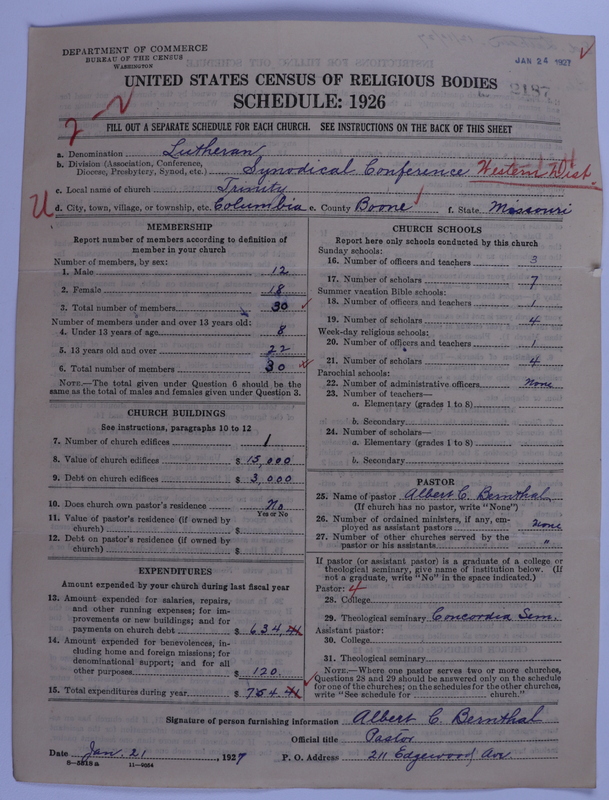 DEPARTMENT OF COMMERCE
BUREAU OF THE CENSUS
WASHINGTON
JAN 24 1927
2187
UNITED STATES CENSUS OF RELIGIOUS BODIES
SCHEDULE: 1926
FILL OUT A SEPARATE SCHEDULE FOR EACH CHURCH. SEE INSTRUCTIONS ON THE BACK OF THIS SHEET
a. Denomination Lutheran
b. Division (Association, Conference,
Diocese, Presbytery, Synod, etc.) Synodical Conference Western Dist.
c. Local name of church Trinity
d. City, town, village, or township, etc. Columbia e. County Boone f. State Missouri
MEMBERSHIP
Report number of members according to definition of
member in your church
Number of members, by sex:
1. Male 12
2. Female 18
3. Total number of members 30
Number of members under and over 13 years old:
4. Under 13 years of age 8
5. 13 years old and over 22
6. Total number of members 30
NOTE.—The total given under Question 6 should be the
same as the total of males and females given under Question 3.
CHURCH BUILDINGS
See instructions, paragraphs 10 to 12
7. Number of church edifices 1
8. Value of church edifices $ 15,000
9. Debt on church edifices $ 3,000
10. Does church own pastor's residence No
Yes or No
11. Value of pastor's residence (if owned by
church) $
12. Debt on pastor's residence (if owned by
church) $
EXPENDITURES
Amount expended by your church during last fiscal year
13. Amount expended for salaries, repairs,
and other running expenses; for im-
provements or new buildings; and for
payments on church debt $ 634.
14. Amount expended for benevolences, in-
cluding home and foreign missions; for
denominational support; and for all
other purposes $ 120
15. Total expenditures during year $ 754
CHURCH SCHOOLS
Report here only schools conducted by this church
Sunday schools:
16. Number of officers and teachers 3
17. Number of scholars 7
Summer vacation Bible schools:
18. Number of officers and teachers 1
19. Number of scholars 4
Week-day religious schools:
20. Number of officers and teachers 1
21. Number of scholars 4
Parochial schools:
22. Number of administrative officers none
23. Number of teachers—
a. Elementary (grades 1 to 8)
b. Secondary
24. Number of scholars—
a. Elementary (grades 1 to 8)
b. Secondary
PASTOR
25. Name of pastor Albert C. Bernthal
(If church has no pastor, write "None")
26. Number of ordained ministers, if any, em-
ployed as assistant pastors none
27. Number of other churches served by the
pastor or his assistants "
If pastor (or assistant pastor) is a graduate of a college or
theological seminary, give name of institution below. (If
not a graduate, write "No" in the space indicated.)
Pastor: 4
28. College
29. Theological seminary Concordia Sem.
Assistant pastor:
30. College
31. Theological seminary
NOTE.—Where one pastor serves two or more churches,
Questions 28 and 29 should be answered only on the schedule
for one of the churches; on the schedules for the other churches,
write "See schedule for church."
Signature of person furnishing information Albert C. Bernthal
Official title Pastor
Date Jan. 21, 1927 P. O. Address 211 Edgewood Ave.
8—5818 a 11—9034